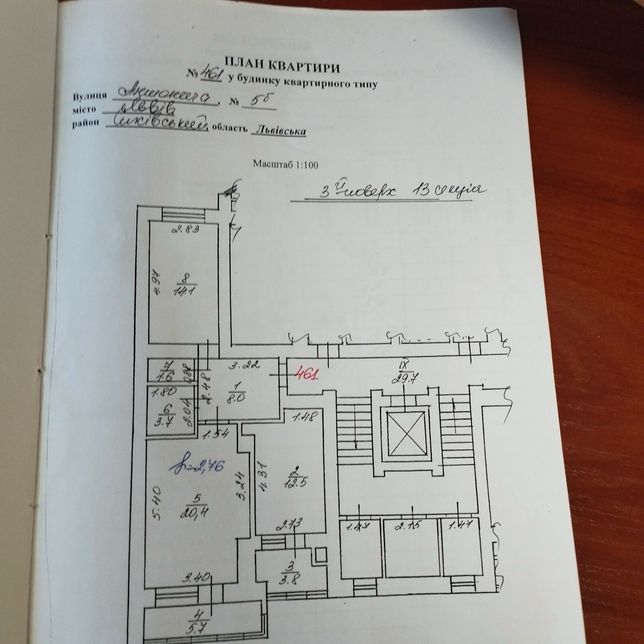 ПЛАН КВАРТИРИ
№ 461 у будинку квартирного типу
Вулиця № 5б
місто Львів
район Сихівський, область Львівська
Масштаб 1:100
3й поверх 13 секція
2.83
4.97
8
14.1
7
1.6
3.22
461
IX
29.7
1.80
2.48
1
8.0
6
3.7
2.04
1.54
1.48
h=2,76
4.31
2
12.5
3.24
5.40
5
20,4
2.73
1.47
2.15
1.47
3
3.8
3.40
4
5.7